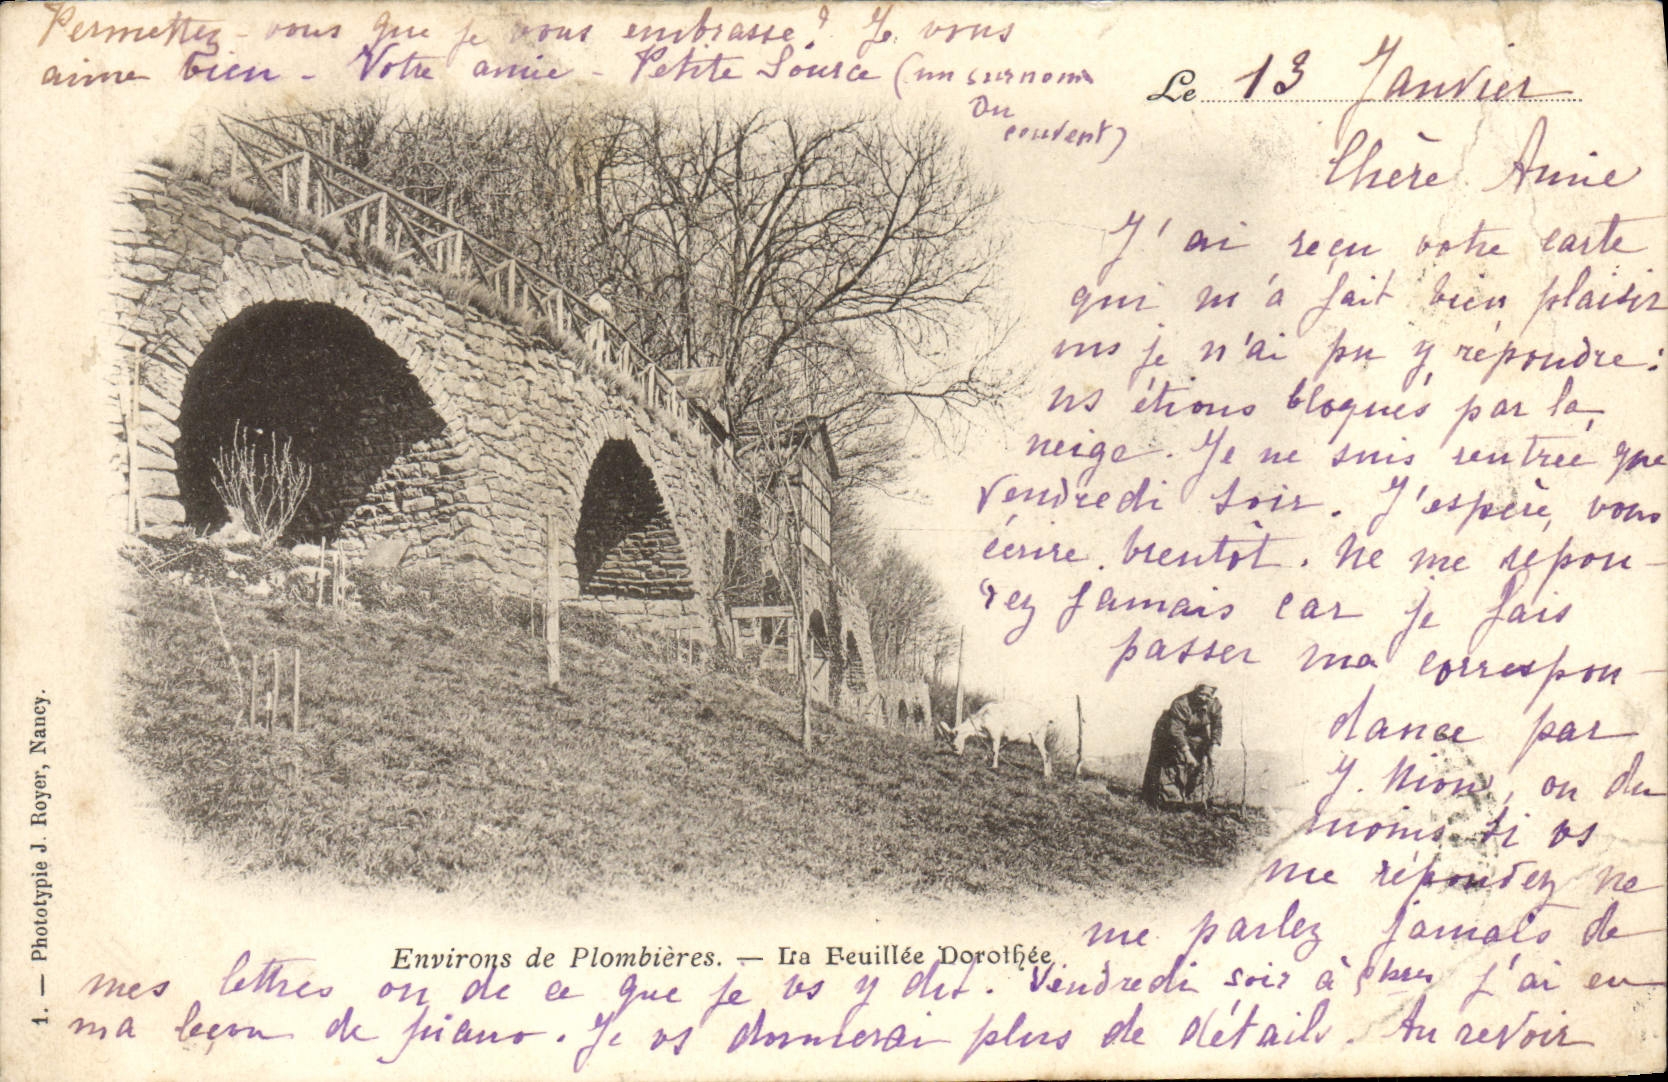 Le 13 Janvier
Chère Amie
J'ai reçu votre carte
qui m'a fait bien plaisir
ms je n'ai pu y répondre :
ns étions bloqués par la
neige. Je ne suis rentrée que
Vendredi soir. J'espère vous
écrire bientôt. Ne me répon-
dez jamais car je fais
passer ma correspon-
dance par
Y. Nion, ou du
moins si vs
me répondez ne
me parlez jamais de
mes lettres ou de ce que je vs y dis. Vendredi soir à hres j'ai eu
ma leçon de piano. Je vs donnerai plus de détails. Au revoir
Permettez-vous que je vous embrasse? Je vous
aime bien - Votre amie - Petite Source (un surnom
Du
couvent)
Environs de Plombières. — La Feuillée Dorothée
1. — Phototypie J. Royer, Nancy.